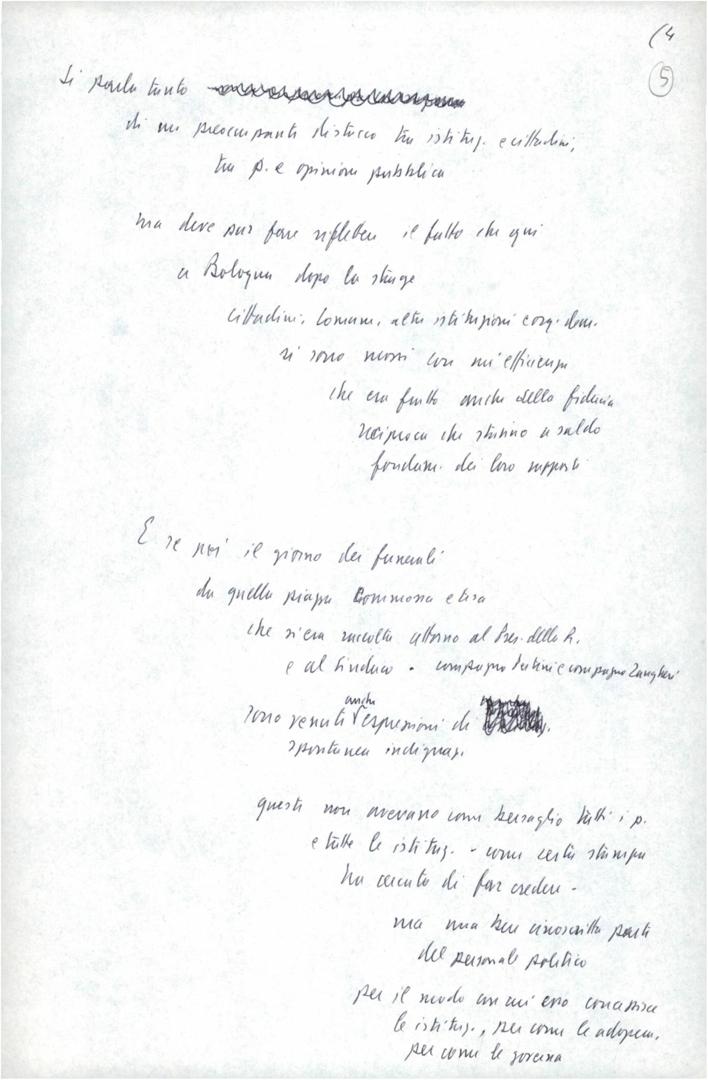 (4
5
Si parla tanto
di un preoccupante distacco tra istituz. e cittadini,
tra p. e opinione pubblica
ma deve pur fare riflettere il fatto che qui
a Bologna dopo la strage
cittadini, Comune, altre istituzioni e org. dem.
si sono mossi con un'efficienza
che era frutto anche della fiducia
reciproca che stanno a saldo
fondam. dei loro rapporti
E se poi il giorno dei funerali
da quella piazza commossa e tesa
che si era raccolta attorno al Pres. della R.
e al Sindaco - compagno Pertini e compagno Zangheri
anche
sono venute espressioni di
spontanea indignaz.
queste non avevano come bersaglio tutti i p.
e tutte le istituz. - come certa stampa
ha cercato di far credere -
ma una ben circoscritta parte
del personale politico
per il modo in cui esso concepisce
le istituz., per come le adopera,
per come le governa